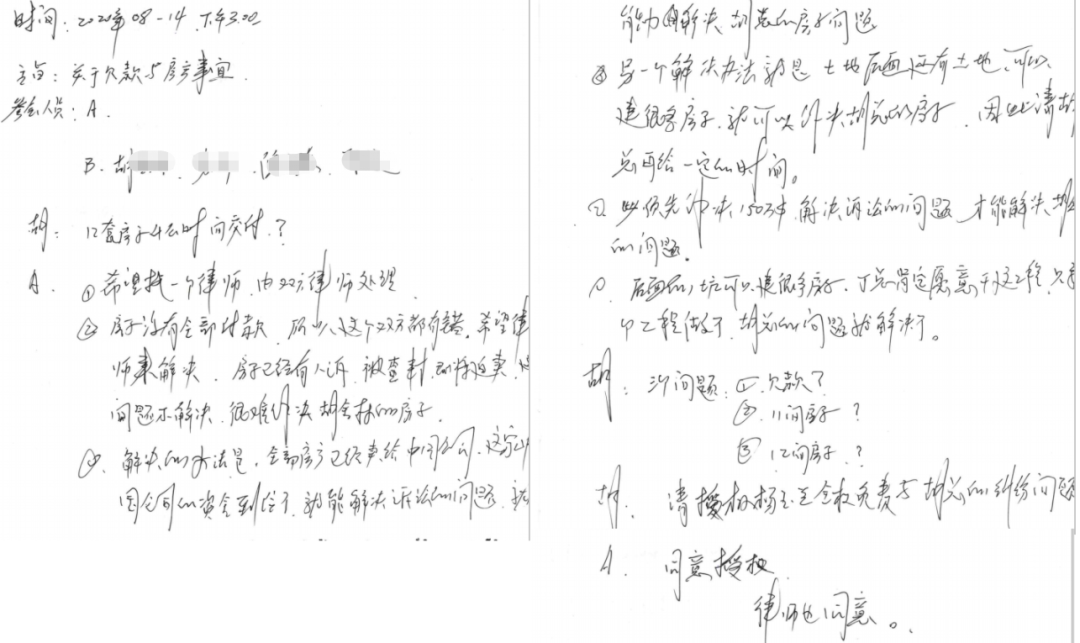 时间：2020年08-14 下午3:00
主旨：关于欠款与房产事宜.
参会人员：A.
B. 胡
胡： 12套房子什么时间交付？
A. ①希望找一个律师，由双方律师处理
② 房子没有全部付款，所以，这个双方都有错。希望律
师来解决，房子已经有人诉，被查封，即将拍卖，
问题不解决，很难解决胡会林的房子.
③. 解决的办法是，全部房子已经卖给中间公司，这家
公司的资金到位了，就能解决诉讼的问题，就
能力解决胡总的房子问题
④ 另一个解决办法就是 土地后面还有土地，可以
建很多房子，就可以解决胡总的房子，因此请胡
总再给一定的时间。
必须先解决150万 解决诉讼的问题 才能解决胡总
的问题。
后面的 可以建很多房子，丁总肯定愿意干这工程，只要
工程做了 胡总的问题就解决了。
胡： 3个问题：①欠款？
② 11间房子？
③ 12间房子？
胡. 请授权杨 全权负责与胡总的纠纷问题
A. 同意授权
律师也同意。